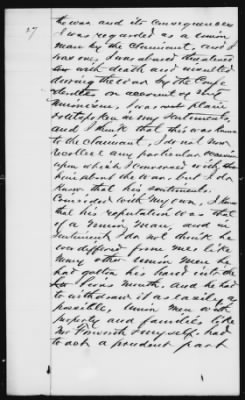 27
the war and its consequences
I was regarded as a union
man by the claimant, and I
was one, I was abused threatened
with death and insulted
during the war by the Confe
derates on account of my
Unionism, I was very plain
& outspoken in my sentiments,
and I think that this was known
to the claimant, I do not now
recollect any particular occasion
upon which I conversed with
him about the war, but I do
know that his sentiments
coincided with my own, I know
that his reputation was that
of a Union man, and in
sentiment I do not think he
ever differed from me, like
many other union men he
had gotten his hand into the
lion's mouth, and he had
to withdraw it as easily as
possible, Union men with
property and families like
Mr & myself had
to act a prudent part